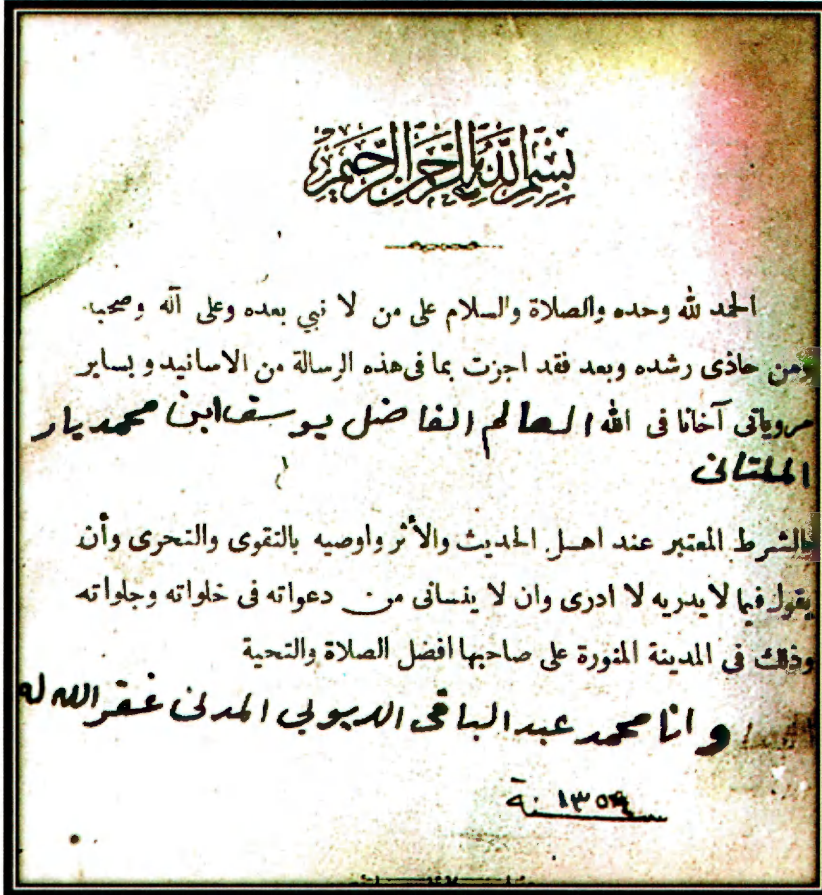 بسم الله الرحمن الرحيم
الحمد لله وحده والصلاة والسلام على من لا نبي بعده وعلى آله وصحبه
ومن حاذى رشده وبعد فقد اجزت بما فى هذه الرسالة من الاسانيد وبساير
مروياتى آخانا فى الله العالم الفاضل يوسف ابن محمد يار
الملتانى
بالشرط المعتبر عند اهل الحديث والأثر واوصيه بالتقوى والتحرى وأن
يقول فيما لايدريه لا ادرى وان لا ينسانى من دعواته فى خلواته وجلواته
وذلك فى المدينة المنورة على صاحبها افضل الصلاة والتحية
وانا محمد عبد الباقى الايوبي المدنى غفر الله له
سنة ١٣٥٤